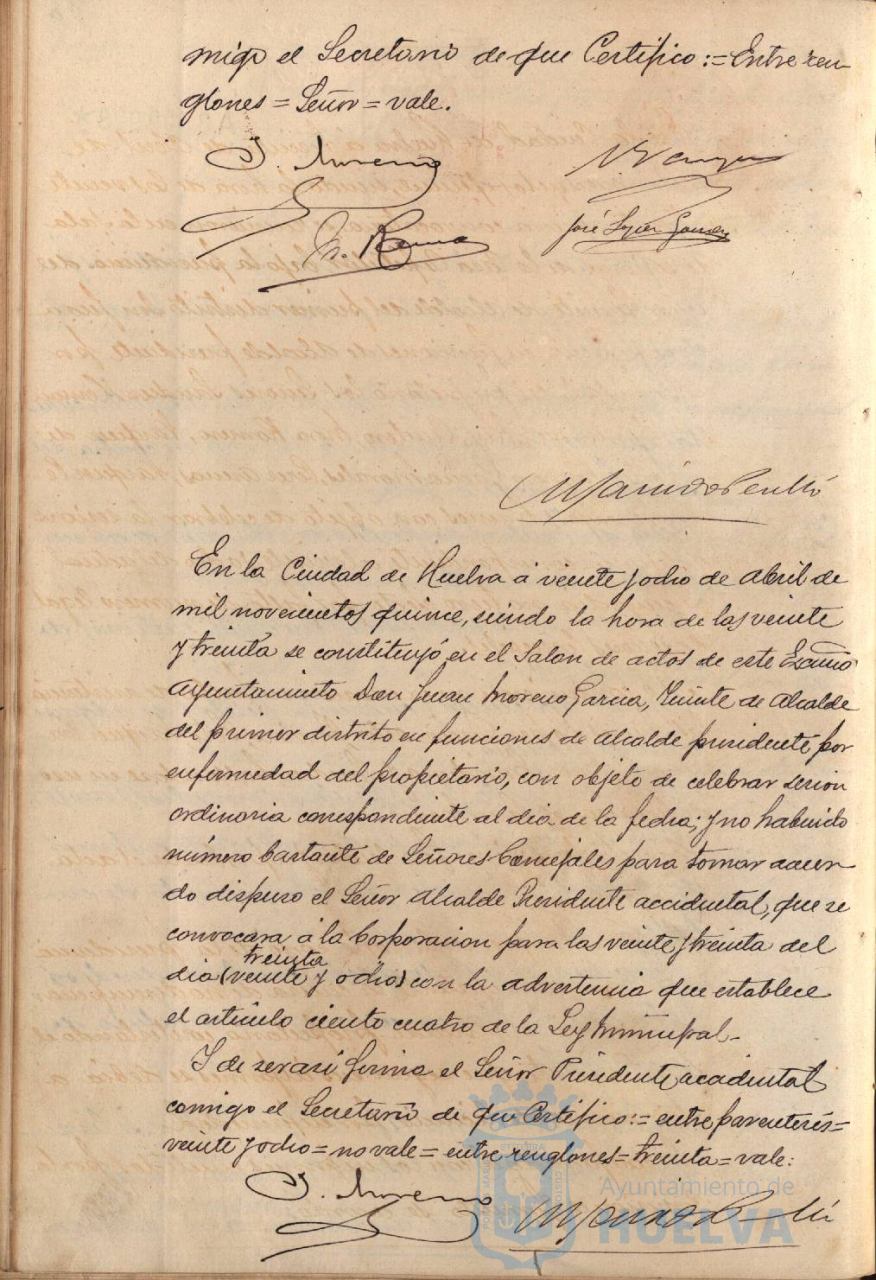 migo el Secretario de que Certifico:= Entre ren-
glones = Señor = vale.
J. Moreno
José López Gómez
En la Ciudad de Huelva á veinte y ocho de Abril de
mil novecientos quince, siendo la hora de las veinte
y treinta se constituyó en el Salon de actos de este Excmo
Ayuntamiento Don Juan Moreno Garcia, Teniente de Alcalde
del primer distrito en funciones de Alcalde presidente por
enfermedad del propietario, con objeto de celebrar sesion
ordinaria correspondiente al dia de la fecha; y no habiendo
número bastante de Señores Concejales para tomar acuer-
do dispuso el Señor Alcalde Presidente accidental, que se
convocara á la Corporacion para las veinte y treinta del
treinta
dia (veinte y ocho) con la advertencia que establece
el artículo ciento cuatro de la Ley Municipal.-
Y de ser asi firma el Señor Presidente accidental
comigo el Secretario de que Certifico:= entre parenteris=
veinte y ocho = no vale = entre renglones = treinta = vale:
J. Moreno
Ayuntamiento de
HUELVA